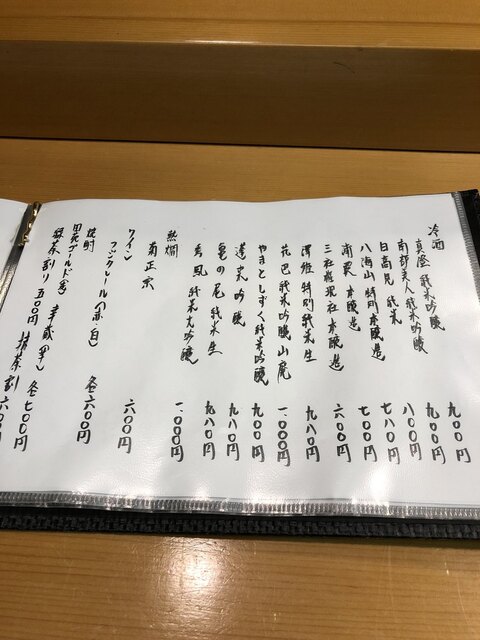 冷酒
真澄 純米吟醸 九〇〇円
南部美人 純米吟醸 九〇〇円
日高見 純米 八〇〇円
八海山 特別本醸造 七八〇円
浦霞 本醸造 七〇〇円
三社権現社 本醸造 六〇〇円
澤姫 特別純米 生 九八〇円
花巴 純米吟醸 山廃 一、〇〇〇円
やまとしずく 純米吟醸 九〇〇円
吟醸 九八〇円
亀の尾 純米 生 九八〇円
秀鳳 純米大吟醸 一、〇〇〇円
熱燗
菊正宗 六〇〇円
ワイン
フンクレール(赤・白) 各六〇〇円
焼酎
田苑ゴールド(麦) 幸蔵(芋) 各七〇〇円
緑茶割り 五〇〇円 抹茶割 六〇〇円